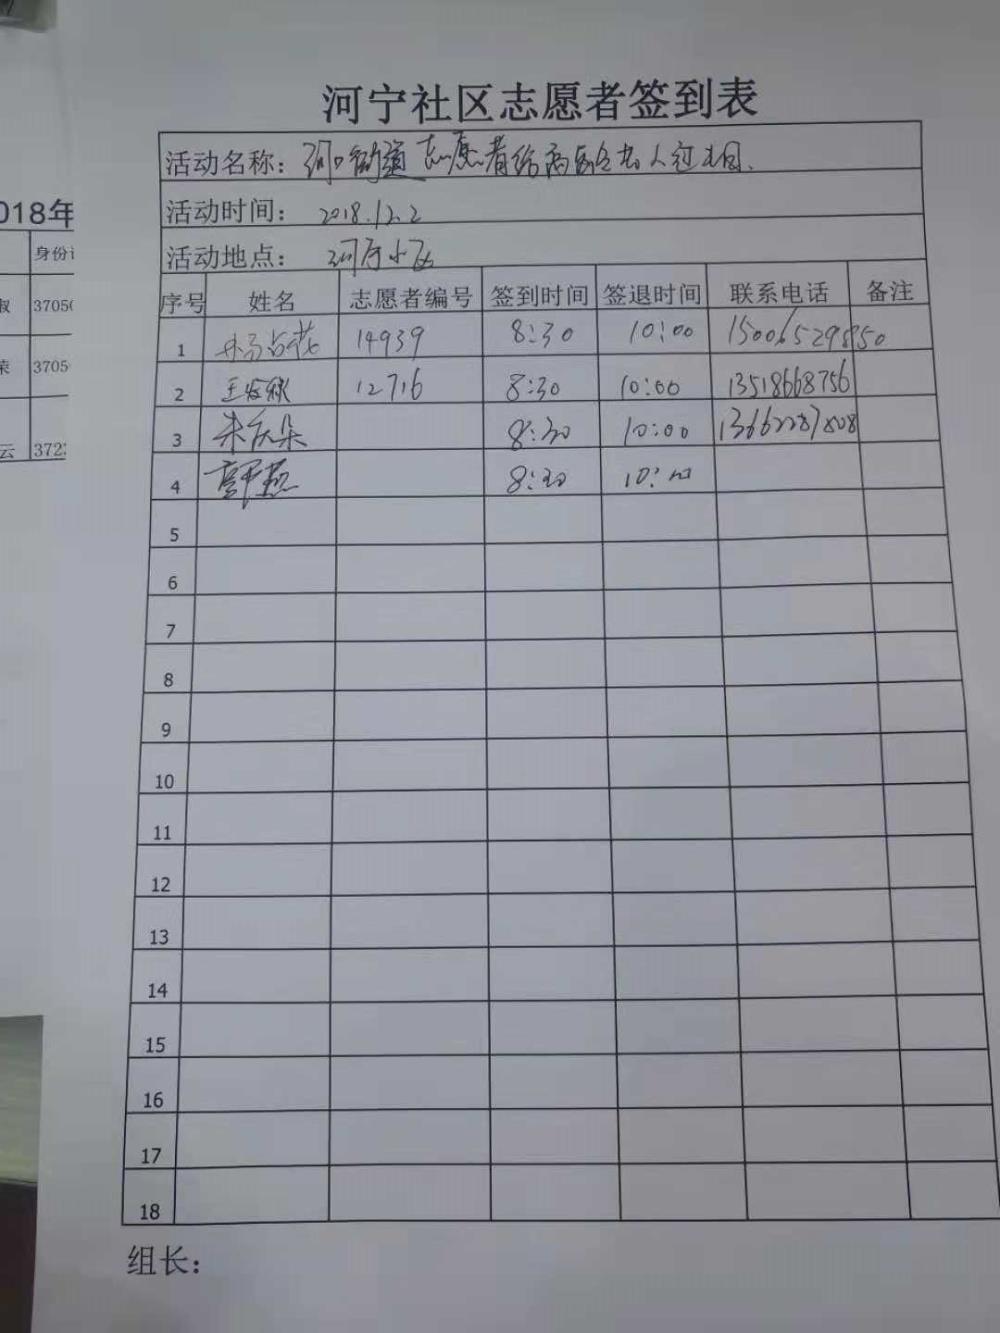 河宁社区志愿者签到表
活动名称：河口街道志愿者给两百位老人过生日.
活动时间：2018.12.2
活动地点：河宁小区
序号 姓名 志愿者编号 签到时间 签退时间 联系电话 备注
1 14939 8:30 10:00 15006529850
2 王发秋 12716 8:30 10:00 13518668756
3 8:30 10:00 13662287808
4 8:30 10:00
5
6
7
8
9
10
11
12
13
14
15
16
17
18
组长：
018年
身份
3705
荣 3705
云 372